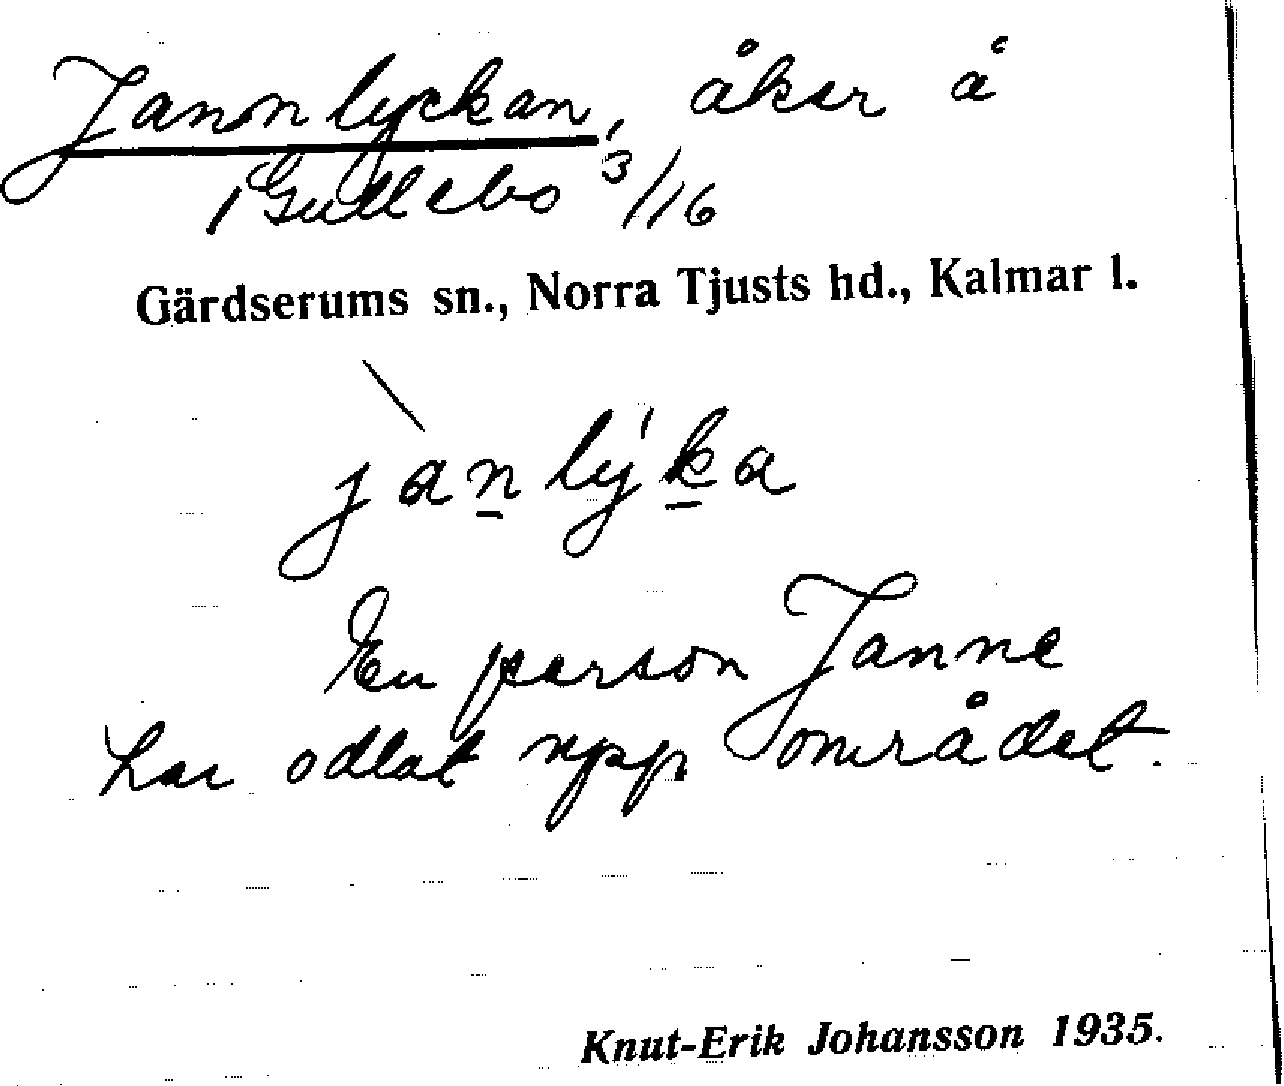 Jannlyckan, åker å
Gullebo 3/16
Gärdserums sn., Norra Tjusts hd., Kalmar l.
janlýka
En person Janne
har odlat upp området.
Knut-Erik Johansson 1935.